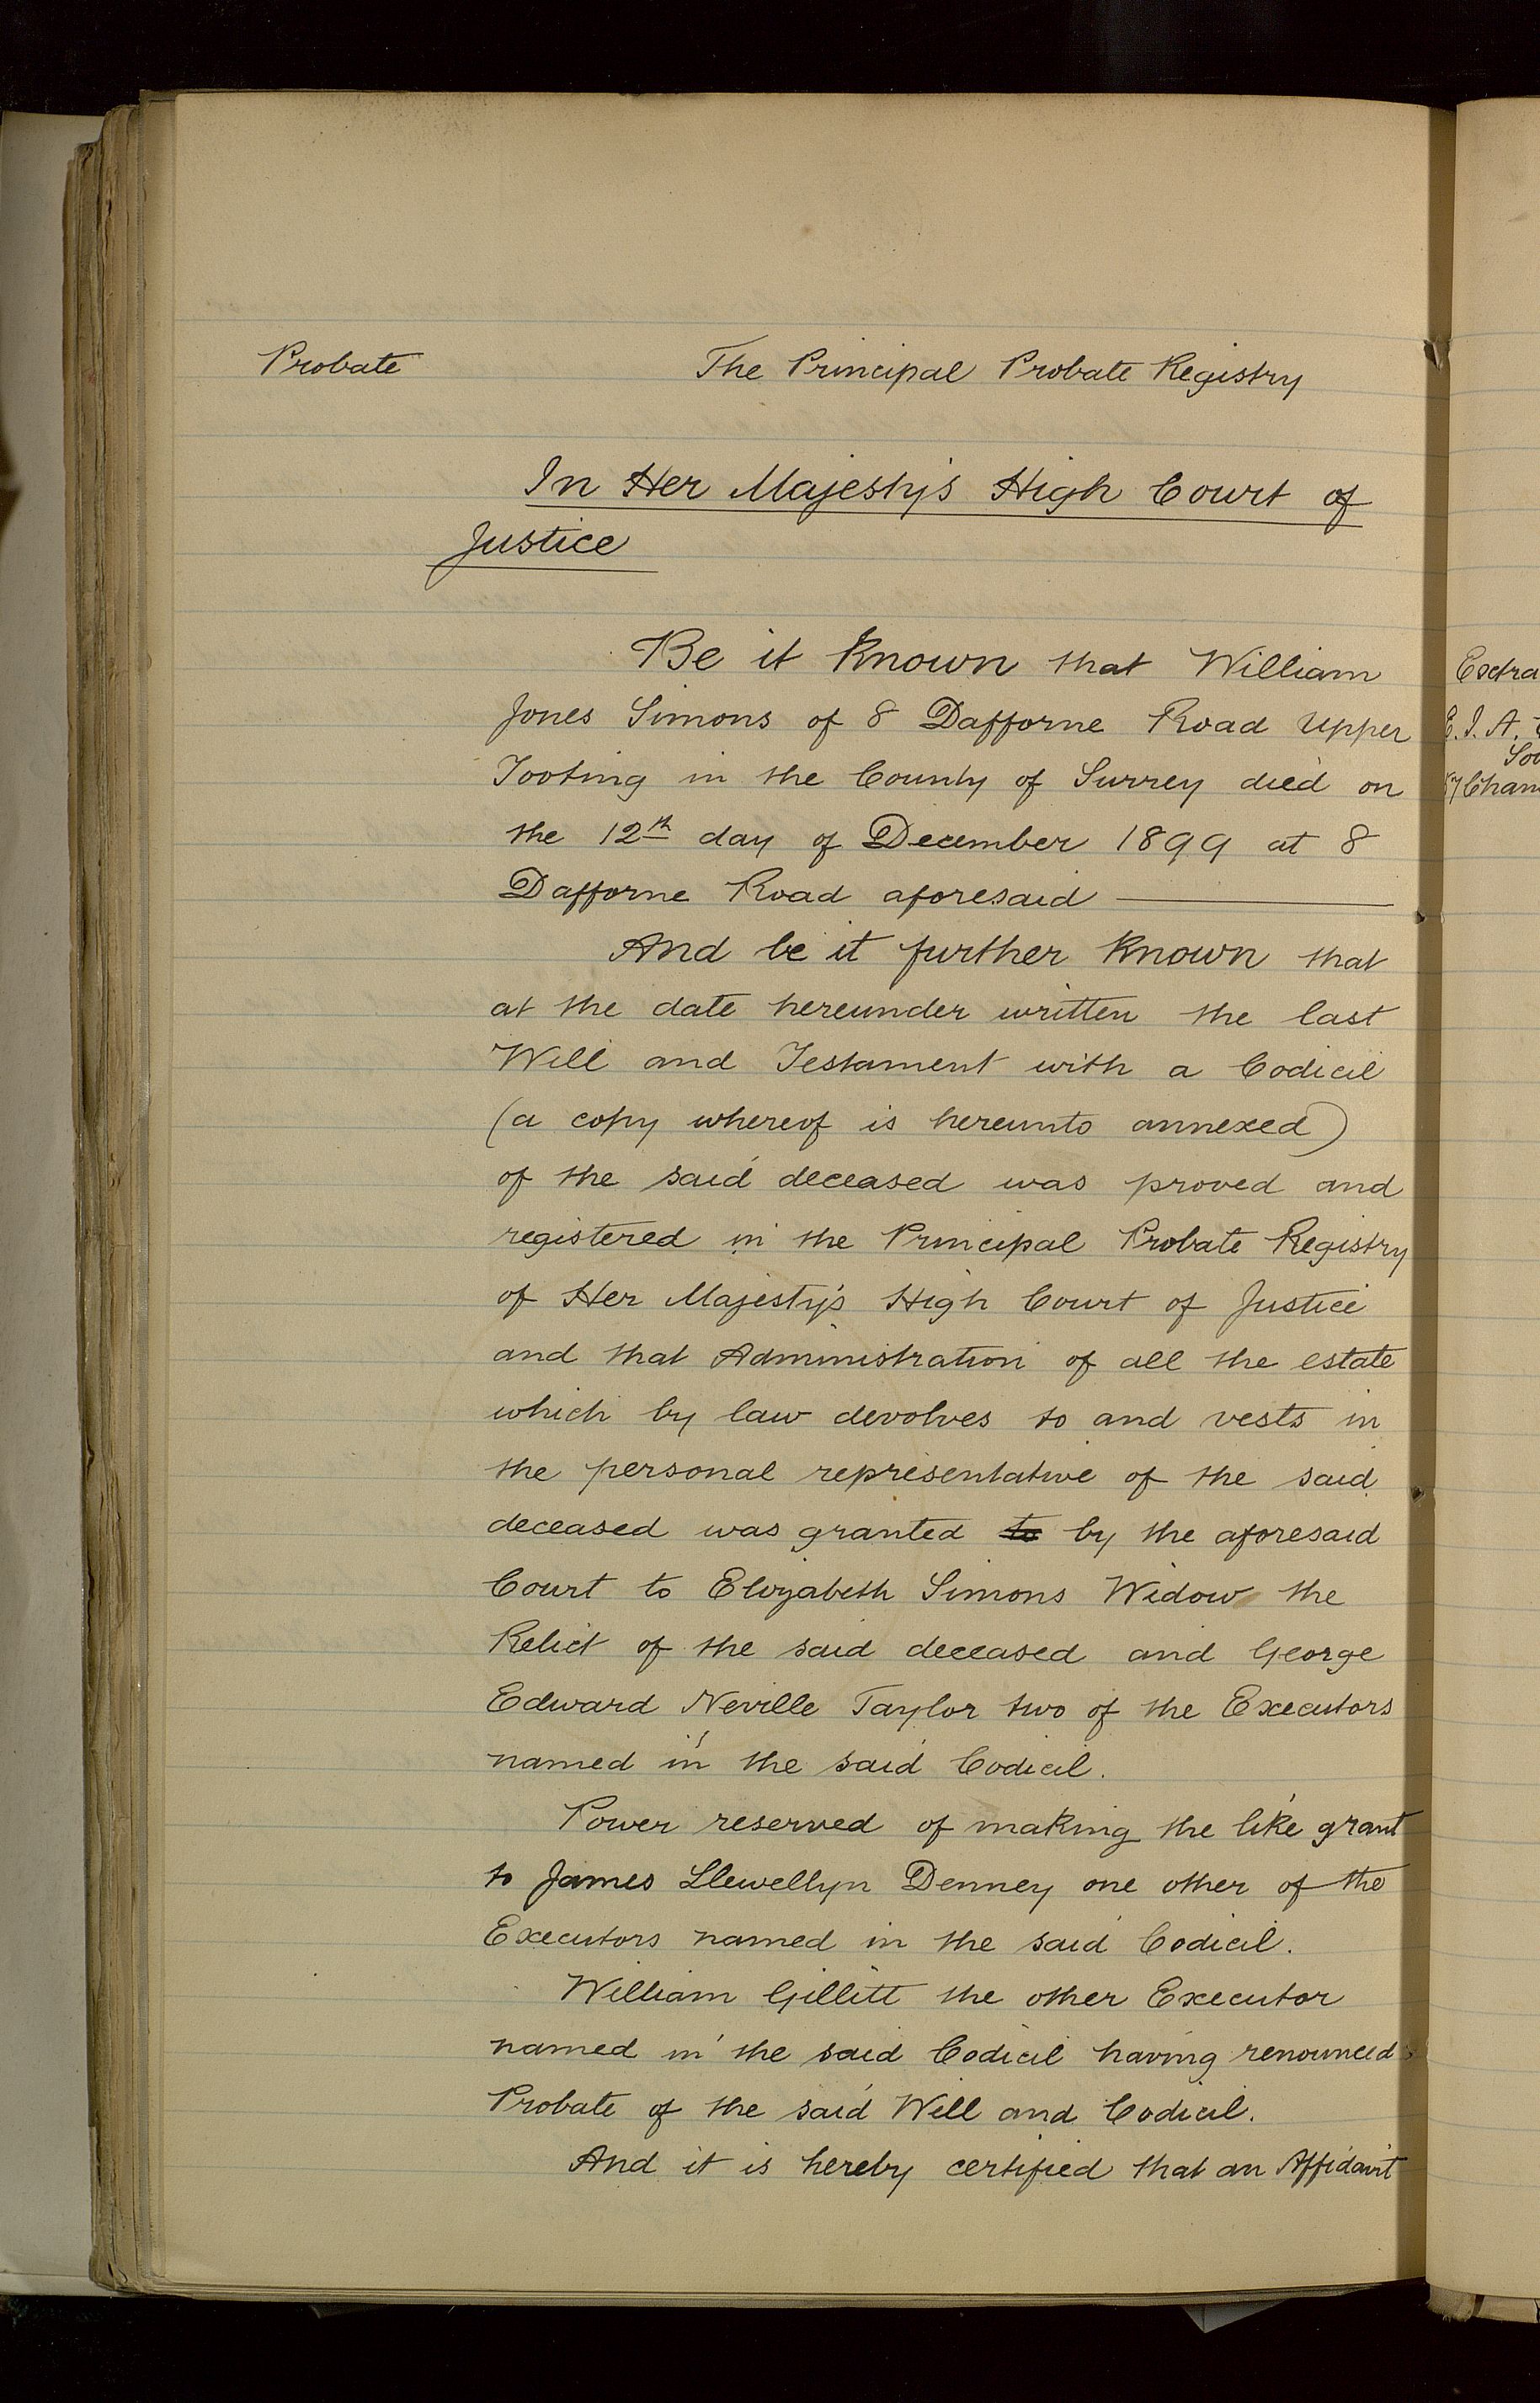 Probate
The Principal Probate Registry
In Her Majesty's High Court of
Justice
Be it Known that William
Jones Simons of 8 Dafforne Road Upper
Tooting in the County of Surrey died on
the 12th day of December 1899 at 8
Dafforne Road aforesaid
And be it further Known that
at the date hereunder written the last
Will and Testament with a Codicil
(a copy whereof is hereunto annexed)
of the said deceased was proved and
registered in the Principal Probate Registry
of Her Majesty's High Court of Justice
and that Administration of all the estate
which by law devolves to and vests in
the personal representative of the said
deceased was granted to by the aforesaid
Court to Elizabeth Simons Widow the
Relict of the said deceased and George
Edward Neville Taylor two of the Executors
named in the said Codicil.
Power reserved of making the like grant
to James Llewellyn Denney one other of the
Executors named in the said Codicil.
William Gillitt the other Executor
named in the said Codicil having renounced
Probate of the said Will and Codicil.
And it is hereby certified that an Affidavit
Extra
E. I. A.